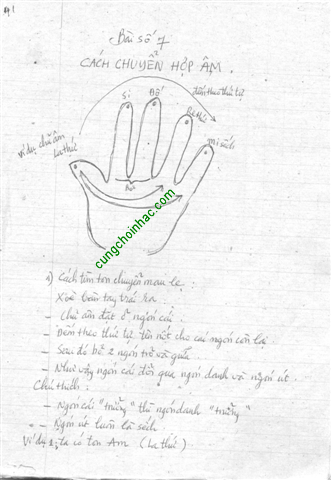 41
Bài số 7
CÁCH CHUYỂN HỢP ÂM.
Si
Đô
đếm theo thứ tự
Rê thứ
mi sếch
Ví dụ chủ âm
La thứ
Bỏ
cungchoinhac.com
1) Cách tìm ton chuyển mau lẹ :
Xoè bàn tay trái ra :
- Chủ âm đặt ở ngón cái :
- Đếm theo thứ tự tên nốt cho các ngón còn lại.
- Sau đó bỏ 2 ngón trỏ và giữa.
- Như vậy ngón cái đổi qua ngón danh và ngón út.
Chú thích :
- Ngón cái "trưởng" thì ngón danh "trưởng"
- Ngón út luôn là sếch.
Ví dụ 1: ta có ton Am (La thứ)